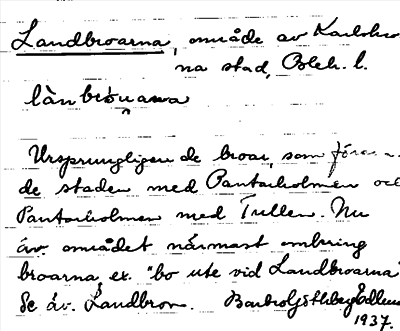 Landbroarna, område av Karlskro
na stad, Blek. l.
lànbròuana
Ursprungligen de broar, som fören
de staden med Pantarholmen och
Pantarholmen med Trullen. Nu
äv. området närmast omkring
broarna ex. "bo ute vid Landbroarna"
Se äv. Landbron.
1937.